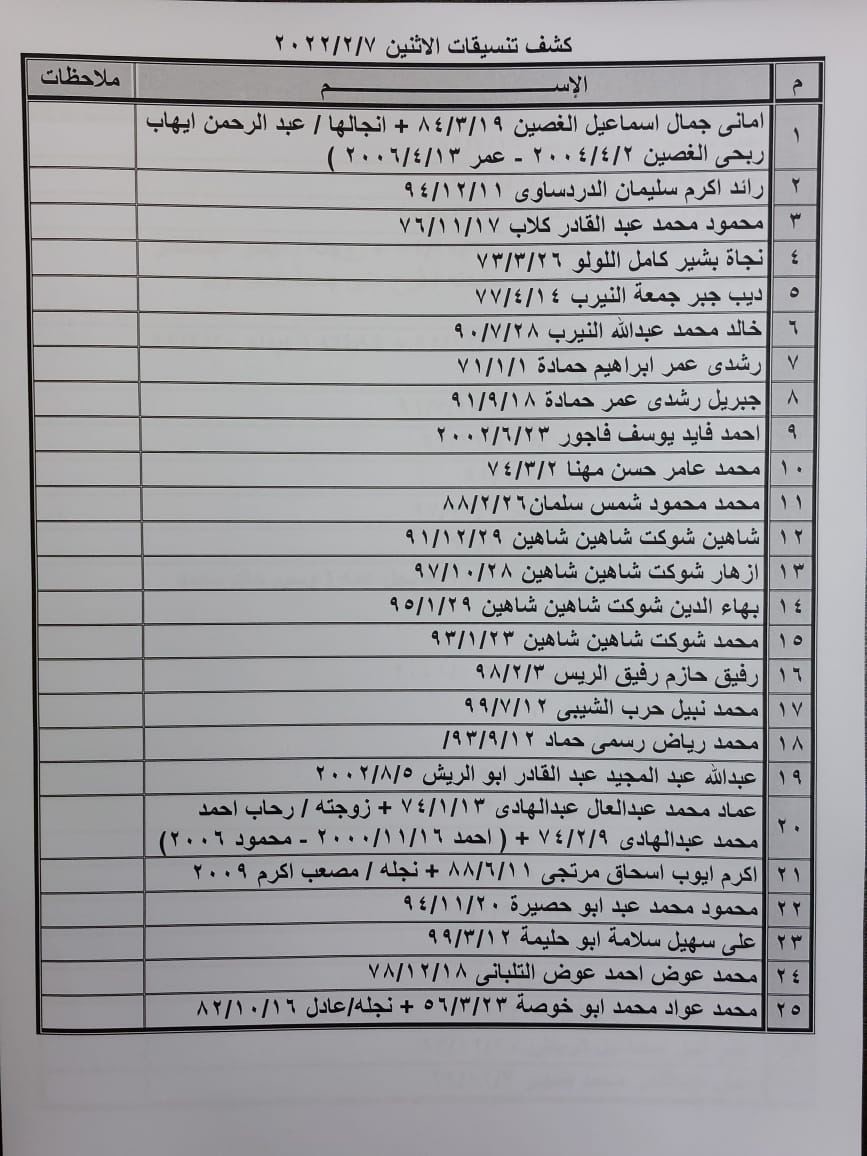 كشف تنسيقات الاثنين ٢٠٢٢/٢/٧
م الإســـــــــــــــــــم ملاحظات
١ امانى جمال اسماعيل الغصين ٨٤/٣/١٩ + انجالها / عبد الرحمن ايهاب
ربحى الغصين ٢٠٠٤/٤/٢ - عمر ٢٠٠٦/٤/١٣ )
٢ رائد اكرم سليمان الدردساوى ٩٤/١٢/١١
٣ محمود محمد عبد القادر كلاب ٧٦/١١/١٧
٤ نجاة بشير كامل اللولو ٧٣/٣/٢٦
٥ ديب جبر جمعة النيرب ٧٧/٤/١٤
٦ خالد محمد عبدالله النيرب ٩٠/٧/٢٨
٧ رشدى عمر ابراهيم حمادة ٧١/١/١
٨ جبريل رشدى عمر حمادة ٩١/٩/١٨
٩ احمد فايد يوسف فاجور ٢٠٠٢/٦/٢٣
١٠ محمد عامر حسن مهنا ٧٤/٣/٢
١١ محمد محمود شمس سلمان٨٨/٢/٢٦
١٢ شاهين شوكت شاهين شاهين ٩١/١٢/٢٩
١٣ ازهار شوكت شاهين شاهين ٩٧/١٠/٢٨
١٤ بهاء الدين شوكت شاهين شاهين ٩٥/١/٢٩
١٥ محمد شوكت شاهين شاهين ٩٣/١/٢٣
١٦ رفيق حازم رفيق الريس ٩٨/٢/٣
١٧ محمد نبيل حرب الشيبى ٩٩/٧/١٢
١٨ محمد رياض رسمى حماد ٩٣/٩/١٢/
١٩ عبدالله عبد المجيد عبد القادر ابو الريش ٢٠٠٢/٨/٥
٢٠ عماد محمد عبدالعال عبدالهادى ٧٤/١/١٣ + زوجته / رحاب احمد
محمد عبدالهادى ٧٤/٢/٩ + ( احمد ٢٠٠٠/١١/١٦ - محمود ٢٠٠٦)
٢١ اكرم ايوب اسحاق مرتجى ٨٨/٦/١١ + نجله / مصعب اكرم ٢٠٠٩
٢٢ محمود محمد عبد ابو حصيرة ٩٤/١١/٢٠
٢٣ على سهيل سلامة ابو حليمة ٩٩/٣/١٢
٢٤ محمد عوض احمد عوض التلبانى ٧٨/١٢/١٨
٢٥ محمد عواد محمد ابو خوصة ٥٦/٣/٢٣ + نجله/عادل ٨٢/١٠/١٦